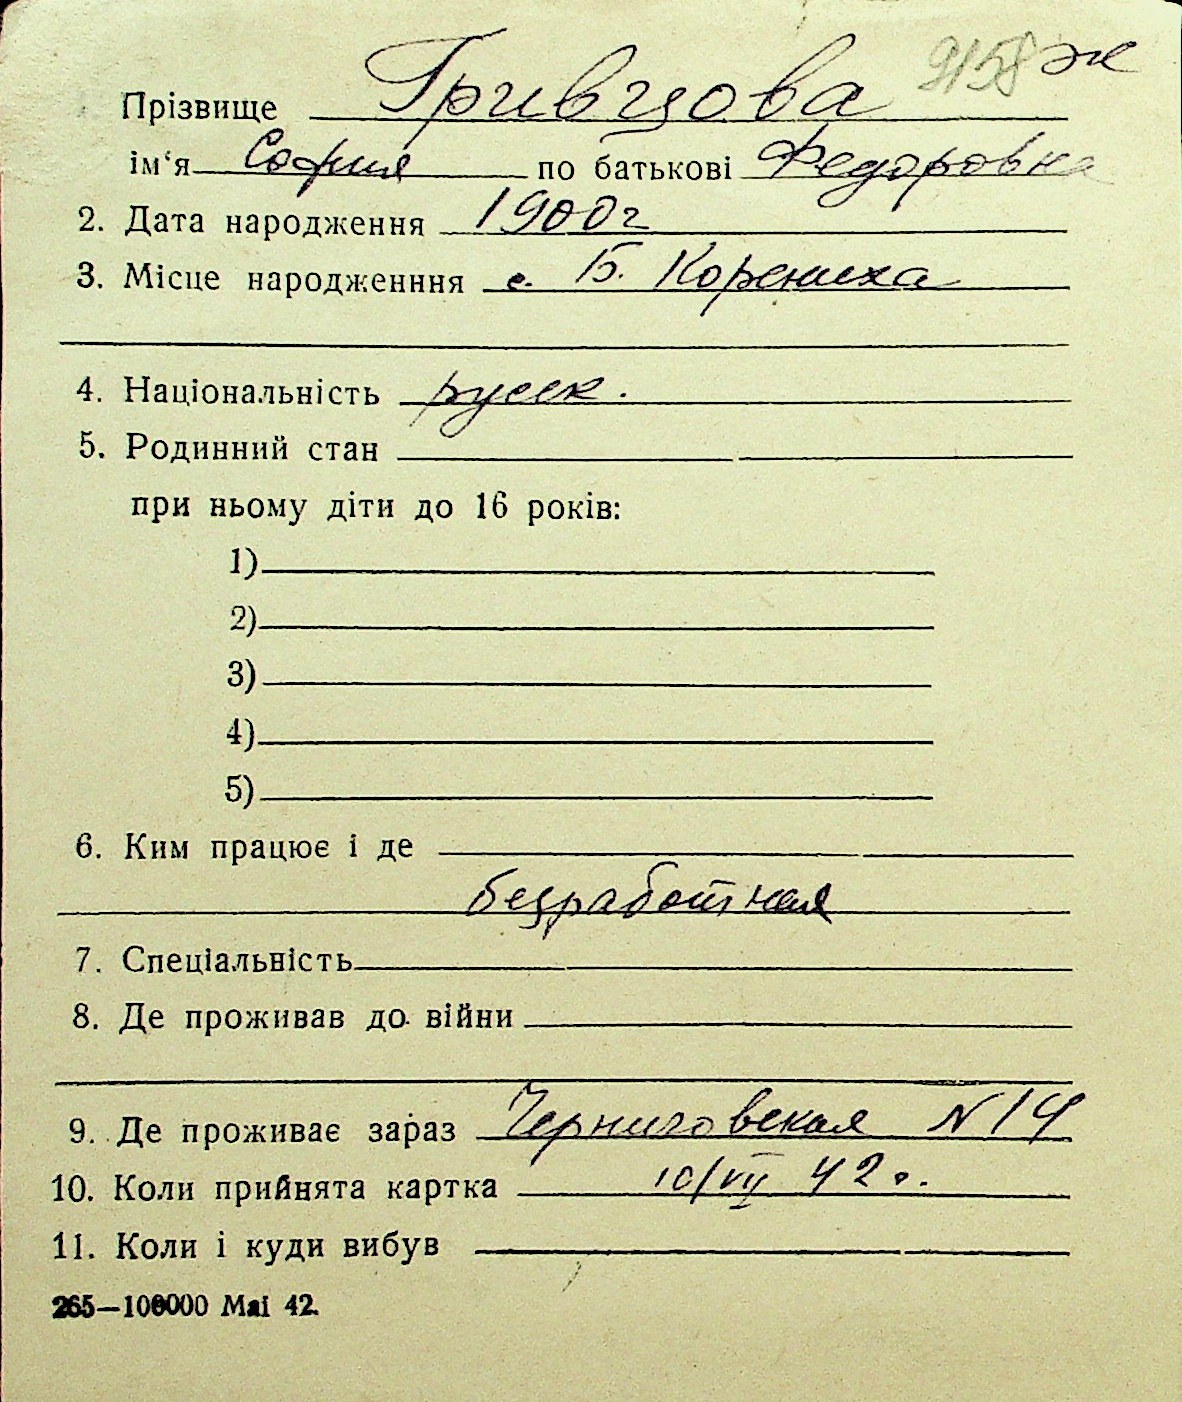 9158 ж
Прізвище Гривцова
ім‘я София по батькові Федоровна
2. Дата народження 1900г
3. Місце народженння с. Б. Корениха
4. Національність русск.
5. Родинний стан
при ньому діти до 16 років:
1)
2)
3)
4)
5)
6. Ким працює і де
безработная
7. Спеціальність
8. Де проживав до війни
9. Де проживає зараз Черниговская N 14
10. Коли прийнята картка 10/VII 42 г.
11. Коли і куди вибув
265—100000 Маі 42.